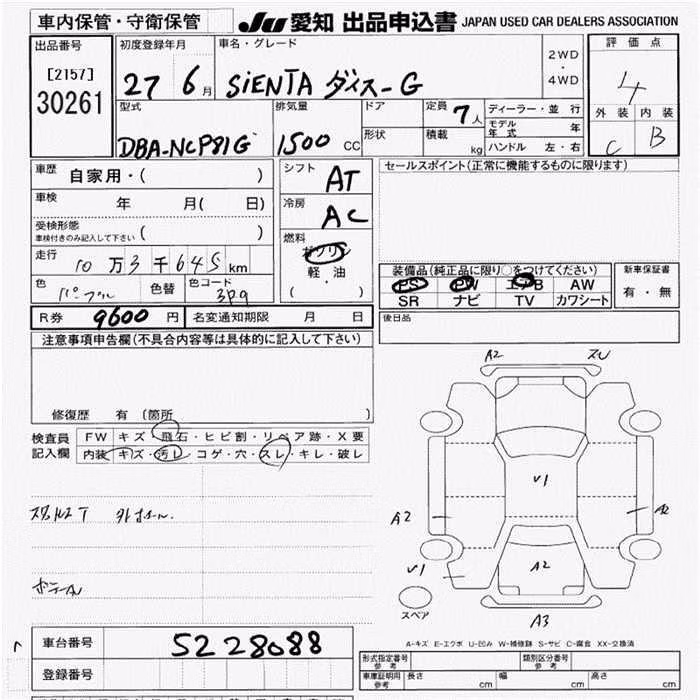 車内保管・守衛保管
JU 愛知 出品申込書 JAPAN USED CAR DEALERS ASSOCIATION
出品番号
[2157]
30261
初度登録年月
27 6 月
車名・グレード
SiENTA ダイス-G
2WD
・
4WD
評価点
4
外装 内装
C B
型式
DBA-NCP81G
排気量
1500 CC
ドア
形状
定員 7 人
積載 kg
ディーラー・並行
モデル年式 年
ハンドル 左・右
車歴 自家用・( )
車検 年 月( 日)
受検形態
車検付きのみ記入して下さい ( )
走行 10 万 3 千 645 km
色 パープル 色替 色コード 3P9
シフト AT
冷房 AC
燃料
ガソリン
・
軽油
・
( )
セールスポイント(正常に機能するものに限ります)
装備品(純正品に限り○をつけてください)
PS PW エアB AW
SR ナビ TV カワシート
新車保証書
有・無
後日品
R券 9600 円 名変通知期限 月 日
注意事項申告欄(不具合内容等は具体的に記入して下さい)
修復歴 有 (箇所 )
検査員
記入欄
FW キズ・飛石・ヒビ割・リペア跡・X要
内装 キズ・汚レ・コゲ・穴・スレ・キレ・破レ
A2 スレ
V1
A2 A2
V1 A2
スペア
A3
A-キズ E-エクボ U-凹み W-補修跡 S-サビ C-腐食 XX-交換済
車台番号 5228088
登録番号
形式指定番号
参考
類別区分番号
参考
車庫証明用
参考
長さ cm 幅 cm 高さ cm